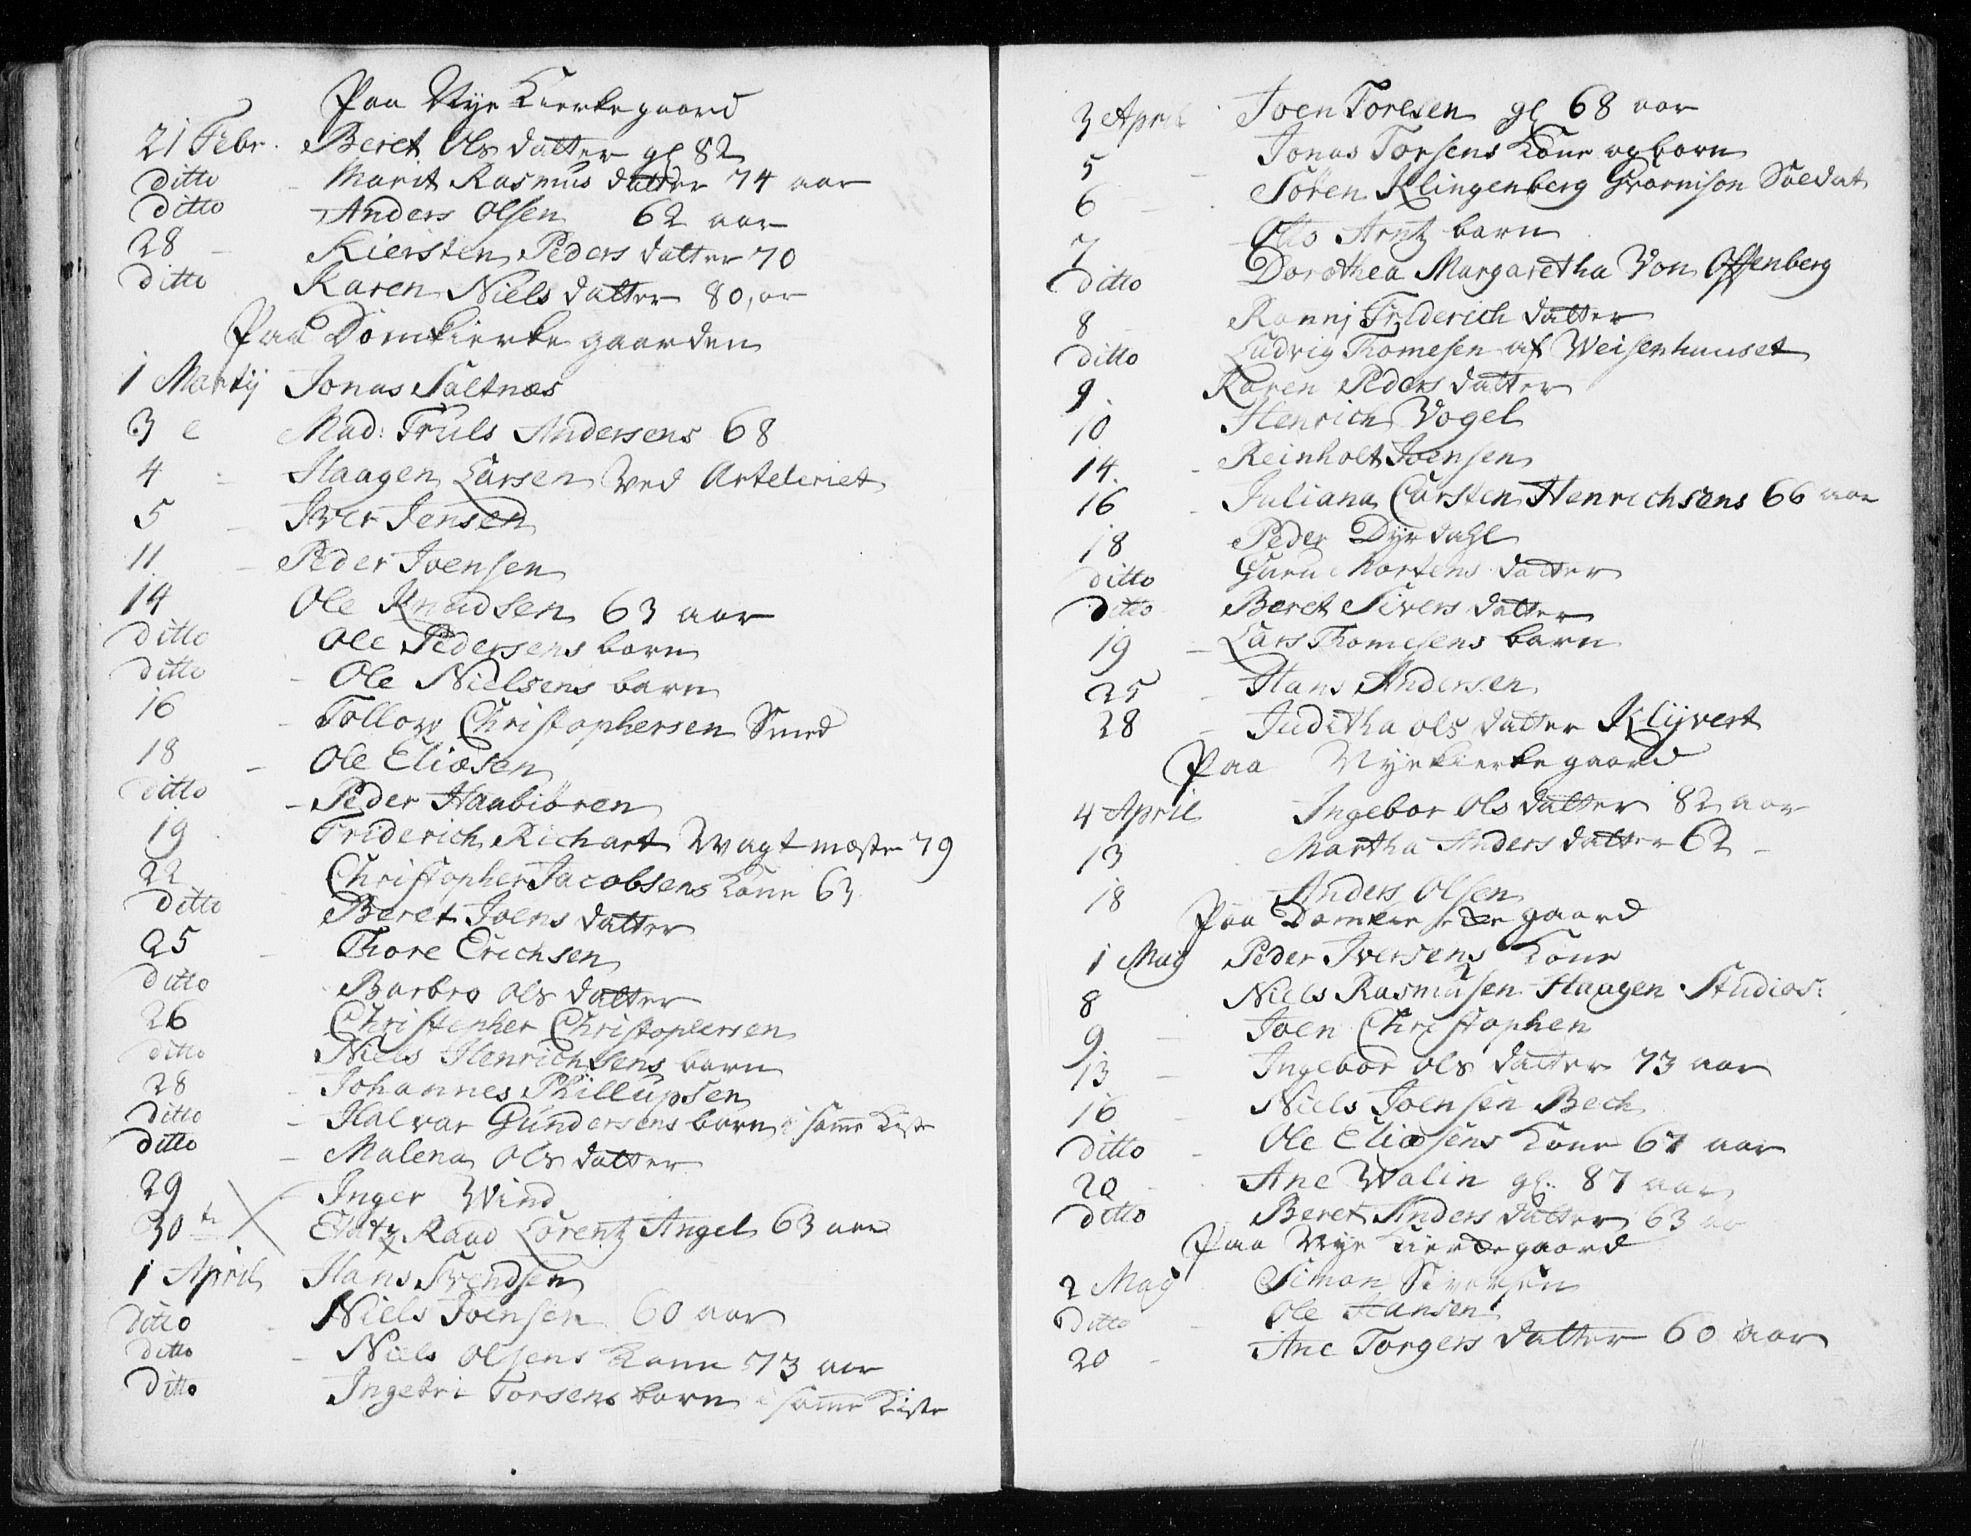 Paa Nye Kierkegaard
21 Febr. Beret Ols datter gl 82
ditto - Marit Rasmus datter 74 aar
ditto Anders Olsen 62 aar
28 - Kiersten Peders datter 70
ditto Karen Niels datter 80, ar
Paa Domkierke gaarden
1 Martij Jonas Saltnæs
3 Mad: Truls Andersens 68
4 - Haagen Larsen ved Arteleriet
5 - Iver Jensen
11 - Peder Joensen
14 Ole Knudsen 63 aar
ditto Ole Pedersens barn
ditto - Ole Nielsens barn
16 - Tollow Christophersen Smed
18 - Ole Eliæsen
ditto - Peder Haabiören
19 Friderich Richart Wagtmæster 79
22 - Christopher Jacobsens Kone 63
ditto Beret Joens datter
25 - Thore Erichsen
ditto Barbro Ols datter
26 Christenher Christophersen
ditto Niels Henrichsens barn
28 - Johannes Phillupsen
ditto - Halvar Gundersens barn i samme Kiste
ditto - Malena Ols datter
29 - Inger Wind
30 te Raad Lorentz Angel 63 aar
1 April Hans Svendsen
ditto - Niels Joensen 60 aar
ditto - Niels Olsens Kone 73 aar
ditto Ingebri Torsens barn i samme Kiste
3 April Joen Toresen gl 68 aar
5 - Jonas Torsens Kone og barn
6 - Sören Klingenberg Gvarnison Soldat
7 - Otto Arntz barn
ditto Dorothea Margaretha Von Offenberg
8 - Rannj Friderich datter
ditto Ludvig Thomesen af Weisenhuuset
9. Karen Peders datter
10 Henrich Vogel
14. - Reinholt Joensen
16 - Juliana Carsten Henrichsens 66 aar
18 Peder Dyrdahl
ditto Guru Mortens datter
ditto Beret Sivers datter
19 - Lars Thomesens barn
25 - Hans Andersen
28 - Juditha Ols datter Klijvert
Paa Nyekierkegaard
4 April Ingebor Ols datter 82 aar
13 Martha Anders datter 62 -
18 Anders Olsen
Paa gaard
1 Maij Peder Iversens Kone
8 Niels Rasmusen Haagen Studios:
9 - Joen Christophen
13 - Ingebor Ols datter 73 aar
16 - Niels Joensen Bech
ditto - Ole Eliæsens Kone 67 aar
20 - Ane Walin gl. 87 aar
ditto Beret Anders datter 63 aa
Paa Nye Kierkegaard
2 Maij Simon Siversen
ditto - Ole Hansen
20 - Ane Torgers datter 60 aar